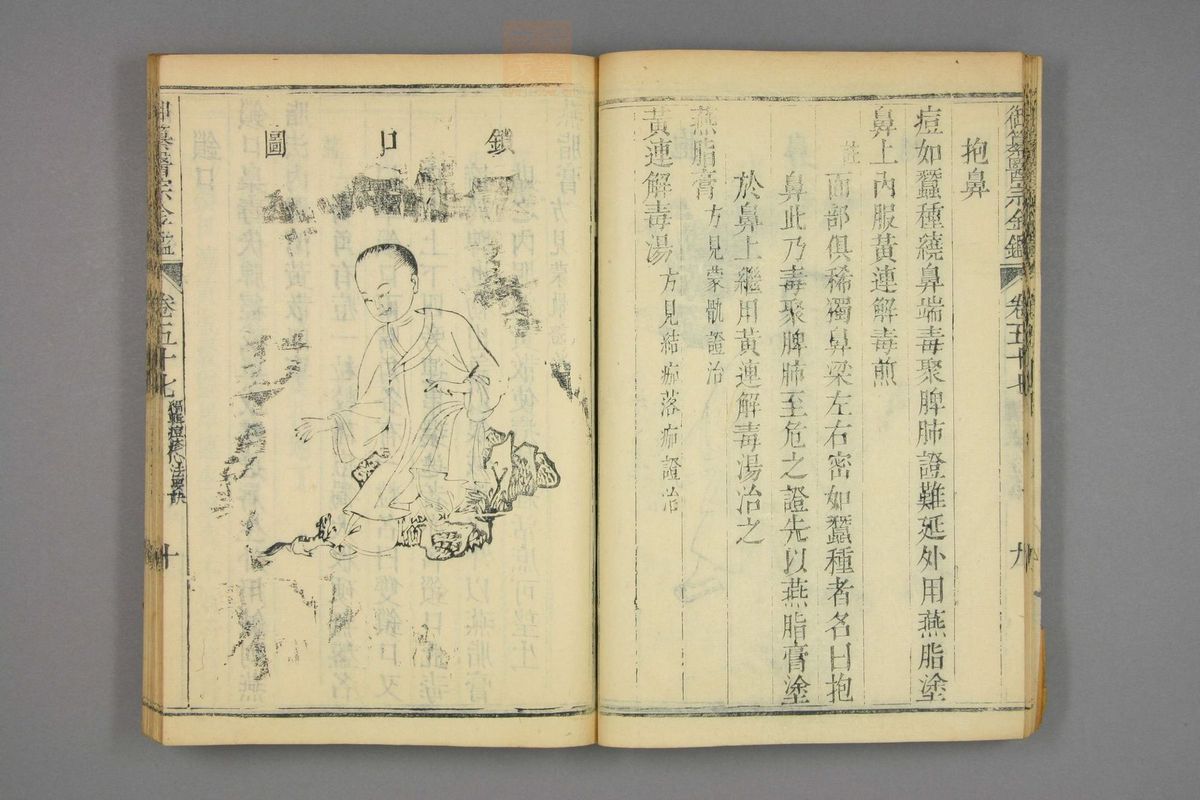 御纂醫宗金鑑 卷五十七 九
抱鼻
痘如蠶種繞鼻端毒聚脾肺證難延外用燕脂塗
鼻上內服黃連解毒煎
註 面部俱稀獨鼻梁左右密如蠶種者名曰抱
鼻此乃毒聚脾肺至危之證先以燕脂膏塗
於鼻上繼用黃連解毒湯治之
燕脂膏 方見蒙骩證治
黃連解毒湯 方見結痂落痂證治
鎖口圖
御纂醫宗金鑑 卷五十七 編輯痘疹心法要訣 十